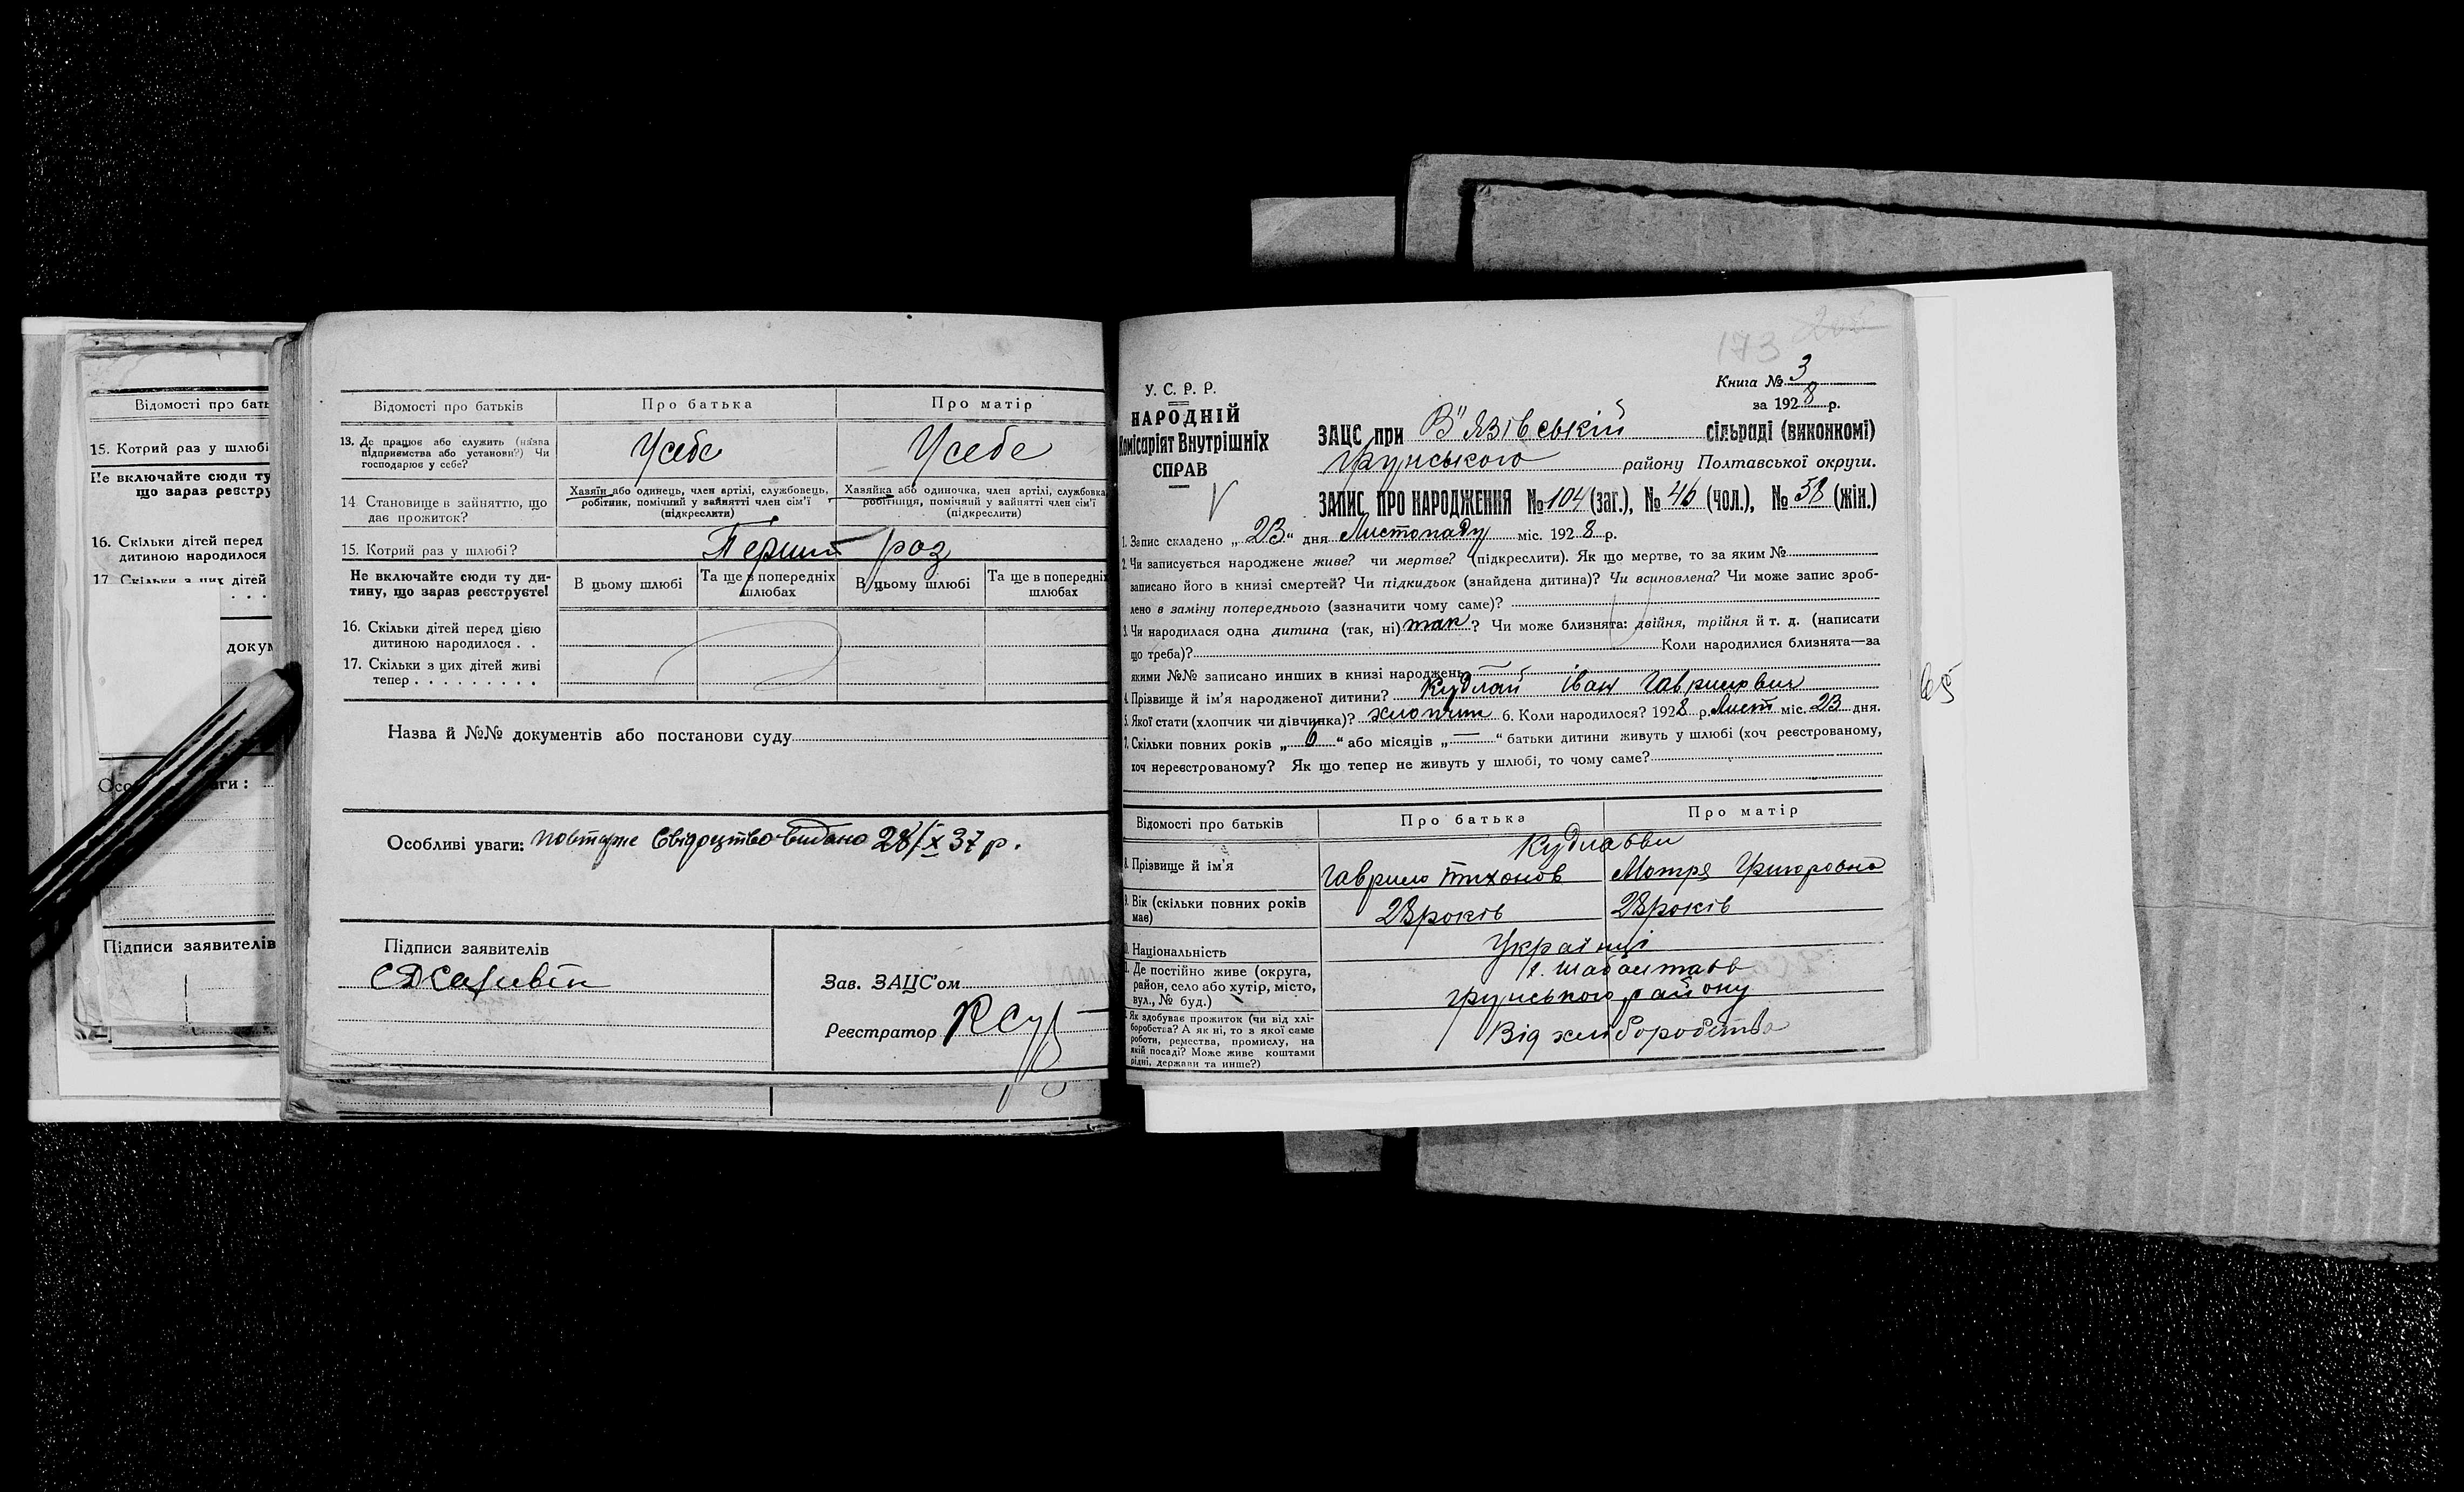 Відомості про бать
15. Котрий раз у шлюбі
Не включайте сюди ту
що зараз реєстру
16. Скільки дітей перед
дитиною народилося
17. Скільки з цих дітей
докум
Осо
ги:
Підписи заявителів
Відомості про батьків
Про батька
Про матір
13. Де працює або служить (назва підприємства або установи?) Чи господарює у себе?
Усебе
Усебе
14 Становище в зайняттю, що дає прожиток?
Хазяїн або одинець, член артілі, службовець, робітник, помічний у зайнятті член сім'ї (підкреслити)
Хазяйка або одиночка, член артілі, службовка робітниця, помічний у зайнятті член сім'ї (підкреслити)
15. Котрий раз у шлюбі?
Перший раз
Не включайте сюди ту дитину, що зараз реєструєте!
В цьому шлюбі
Та ще в попередніх шлюбах
В цьому шлюбі
Та ще в попередніх шлюбах
16. Скільки дітей перед цією
дитиною народилося . .
17. Скільки з цих дітей живі
тепер . . . . . . . . .
Назва й №№ документів або постанови суду
Особливі уваги: повторне Свідоцтво видано 28/ІХ 37 р.
Підписи заявителів
Зав. ЗАЦС'ом
Реєстратор
173
Книга № 3
за 1928 р.
У. С. Р. Р.
НАРОДНІЙ
Комісаріят Внутрішніх
СПРАВ
ЗАЦС при В"язівській сільраді (виконкомі)
Грунського району Полтавської округи.
ЗАПИС ПРО НАРОДЖЕННЯ № 104 (заг.), № 46 (чол.), № 58 (жін.)
1. Запис складено „23" дня Листопаду міс. 1928 р.
2. Чи записується народжене живе? чи мертве? (підкреслити). Як що мертве, то за яким №
записано його в книзі смертей? Чи підкидьок (знайдена дитина)? Чи всиновлена? Чи може запис зроб-
лено в заміну попереднього (зазначити чому саме)?
3. Чи народилася одна дитина (так, ні) так? Чи може близнята: двійня, трійня й т. д. (написати
що треба)? Коли народилися близнята—за
якими №№ записано инших в книзі народжень
4. Прізвище й ім'я народженої дитини? Кудлай Іван Гаврилович
5. Якої стати (хлопчик чи дівчинка)? хлопчик 6. Коли народилося? 1928 р. Лист міс. 23 дня.
7. Скільки повних років „6" або місяців „—" батьки дитини живуть у шлюбі (хоч реєстрованому,
хоч нереєстрованому? Як що тепер не живуть у шлюбі, то чому саме?
65
Відомості про батьків
Про батька
Про матір
Кудлаєви
8. Прізвище й ім'я
Гаврило Тихонов
Мотря Григоровна
9. Вік (скільки повних років має)
28 років
28 років
10. Національність
Українці
11. Де постійно живе (округа,
район, село або хутір, місто,
вул., № буд.)
Грунського району
Як здобуває прожиток (чи від хлі-
боробства? А як ні, то з якої саме
роботи, ремества, промислу, на
якій посаді? Може живе коштами
рідні, держави та инше?)
Від хліборобства